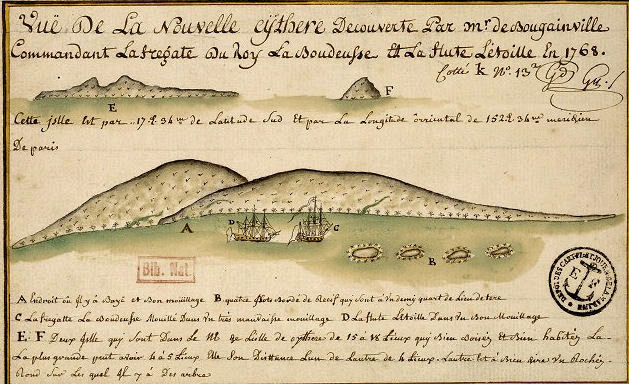 Vuë De La Nouvelle cÿthere Decouverte Par mr. de Bougainville
Commandant La fregate Du Roy La Boudeusse Et La flute Letoille En 1768.
Cotté k No. 13
E
F
Cette jslle Est par 17 34 de Latitude Sud Et par La Longitude orriental de 152 34 meridien
De paris
A
D
C
B
Bib. Nat.
A Endroit où jl y à Baye et Bon mouillage B quatre jlots Bordé de Recif qui sont à Un demy quart de Lieu de tere
C La fregatte La Boudeusse Mouillé Dans Un tres mauvaisse mouillage D La flute Letoille Dans Un Bon Mouillage
E. F Deux jslle qui sont Dans Le de Lisle de cythere De 15 à Lieux qui Bien Boisés et Bien habités La
La plus grande peut avoir 4 à 5 Lieux Elle son Disttance Lun de Lautre de 4 Lieux. Lautre Est à Bien Dire Un Rochér
Rond sur Les quel jl y à Des arbre